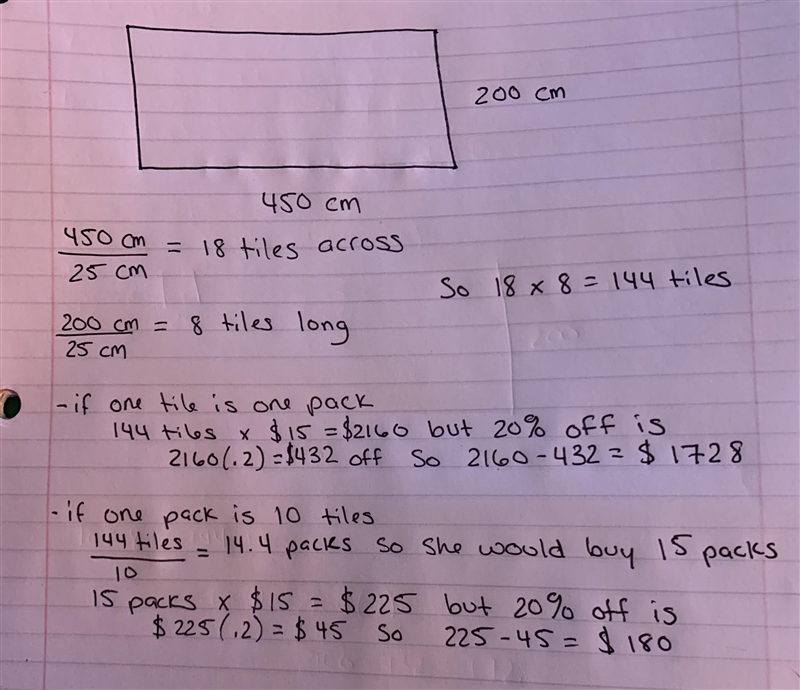 200 cm
450 cm
450 cm / 25 cm = 18 tiles across
So 18 x 8 = 144 tiles
200 cm / 25 cm = 8 tiles long
-if one tile is one pack
144 tiles x $15 = $2160 but 20% off is
2160(.2) = $432 off so 2160 - 432 = $1728
-if one pack is 10 tiles
144 tiles / 10 = 14.4 packs so she would buy 15 packs
15 packs x $15 = $225 but 20% off is
$225(.2) = $45 so 225 - 45 = $180